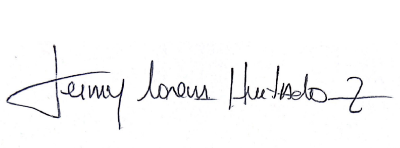 Jenny Lorena Hurtado Z